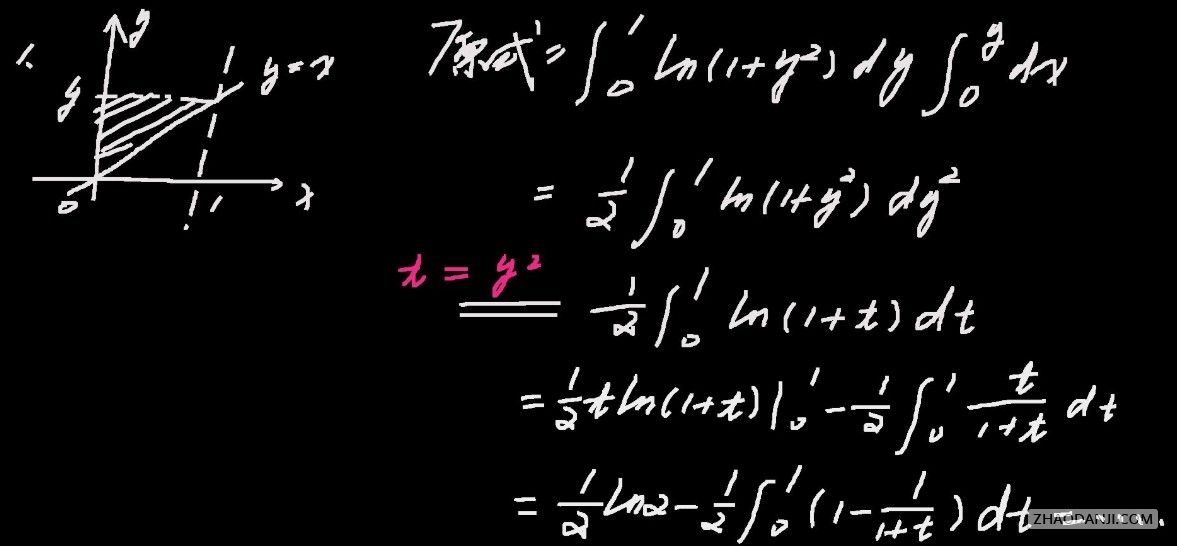 1.
y
y = x
y
0
1
x
原式 = ∫₀¹ ln(1+y²) dy ∫₀^y dx
= 1/2 ∫₀¹ ln(1+y²) dy²
t = y²
1/2 ∫₀¹ ln(1+t) dt
= 1/2 t ln(1+t) |₀¹ - 1/2 ∫₀¹ t/(1+t) dt
= 1/2 ln2 - 1/2 ∫₀¹ (1 - 1/(1+t)) dt = ....
ZHAODANJI.COM